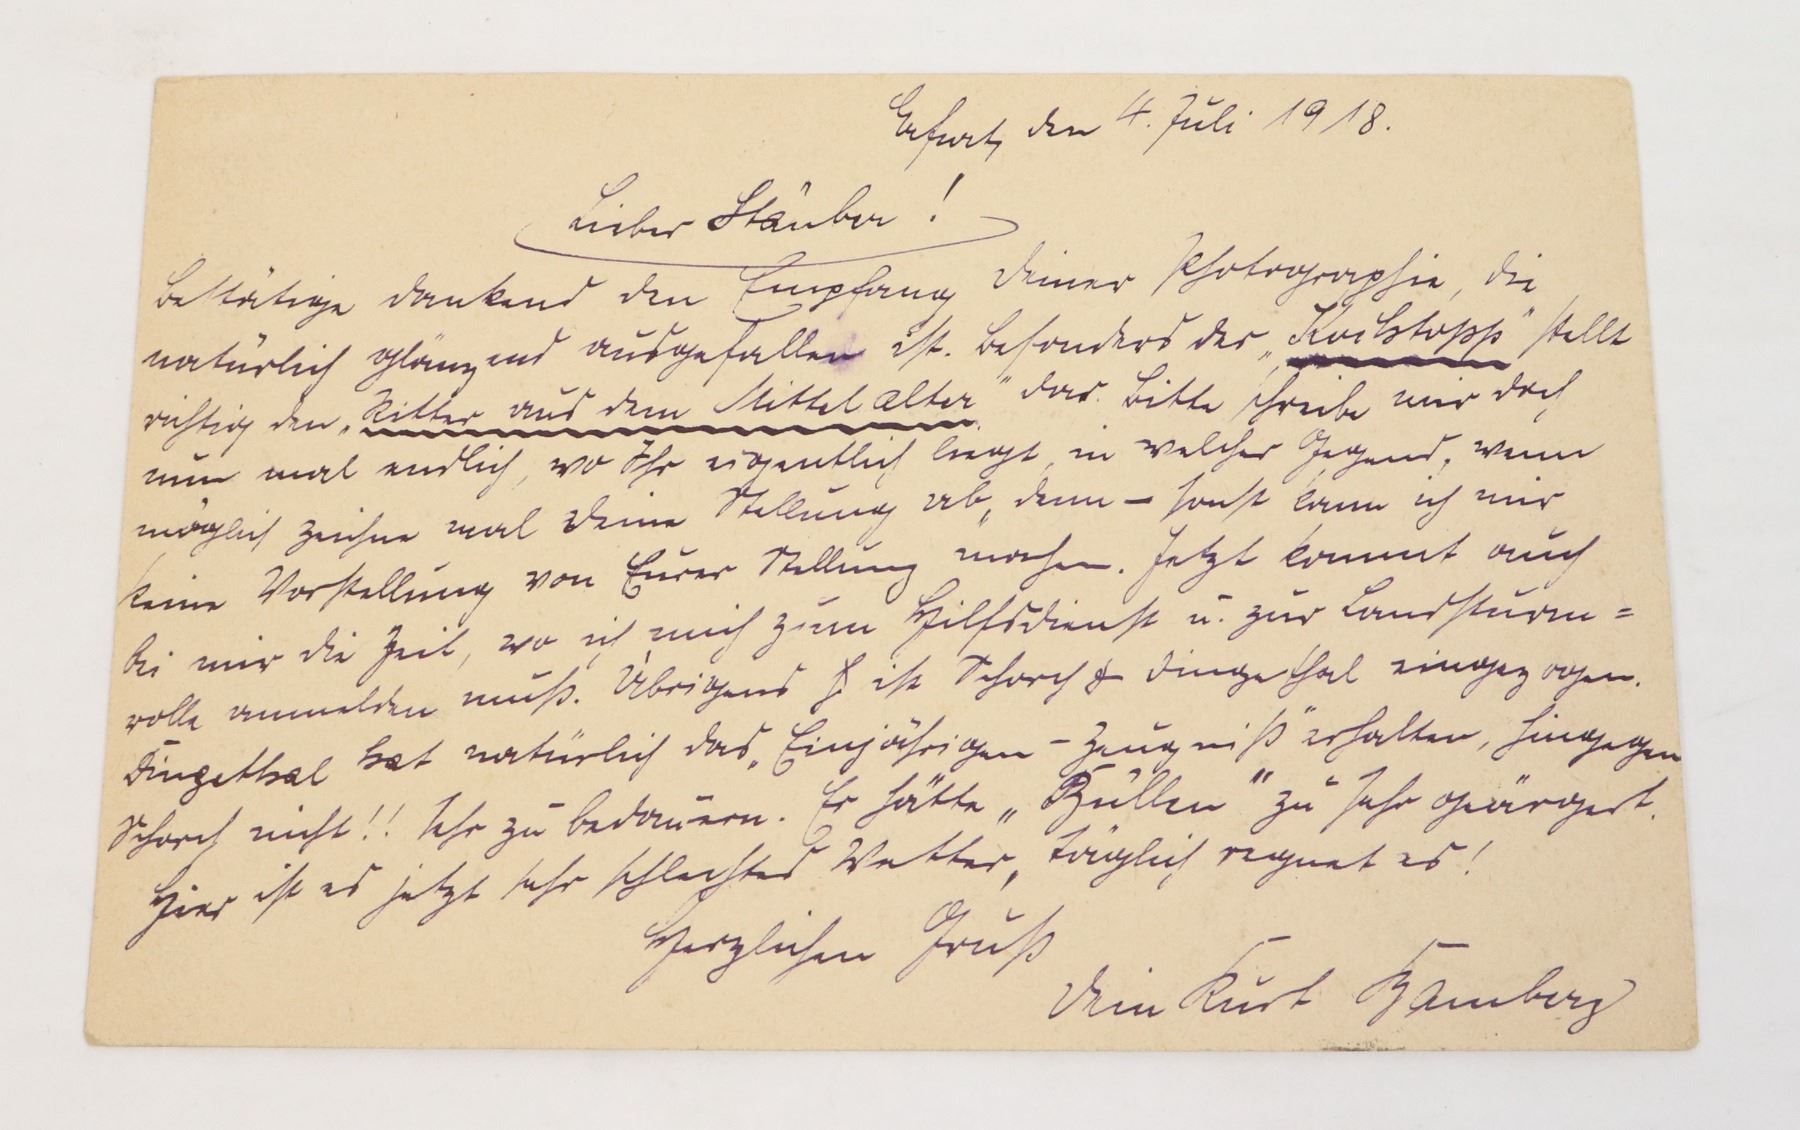 Erfurt, den 4. Juli 1918.
Lieber Stäuber!
Bestätige dankend den Empfang Deiner Photographie, die
natürlich glänzend ausgefallen ist. Besonders der „Kochtopps" stellt
richtig den „Ritter aus dem Mittelalter" dar. Bitte schreibe mir doch
nun mal endlich, wo Ihr eigentlich liegt, in welcher Gegend, wenn
möglich zeichne mal Deine Stellung ab, denn – sonst kann ich mir
keine Vorstellung von Eurer Stellung machen. Jetzt kommt auch
bei mir die Zeit, wo ich mich zum Hilfsdienst u. zur Landsturm=
rolle anmelden muß. Übrigens ist Schorch & Dingethal eingezogen.
Dingethal hat natürlich das „Einjährigen-Zeugniß" erhalten, hingegen
Schorch nicht!! Sehr zu bedauern. Er hätte „Büllen" zu sehr geärgert.
Hier ist es jetzt sehr schlechtes Wetter, täglich regnet es!
Herzlichen Gruß
Dein Kurt Bamberg